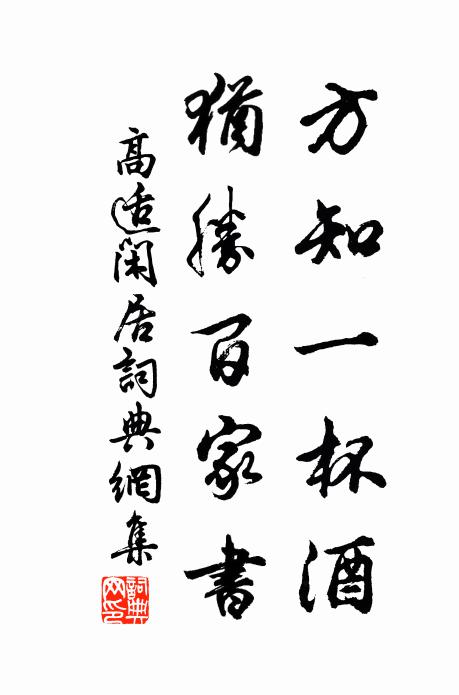 方知一杯酒
猶勝百家書
高适閑居詞典網集
詞典網印